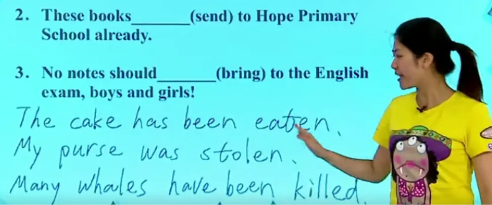 2. These books_______(send) to Hope Primary
School already.
3. No notes should_______(bring) to the English
exam, boys and girls!
The cake has been eaten.
My purse was stolen.
Many whales have been killed.